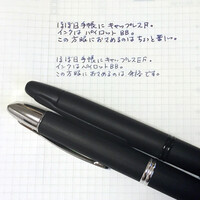 ほぼ日手帳にキャップレスF。
インクはパイロットBB。
この方眼におさめるのはちょっと苦しい。
ほぼ日手帳にキャップレスEF。
インクはパイロットBB。
この方眼におさめるのは 余裕です。